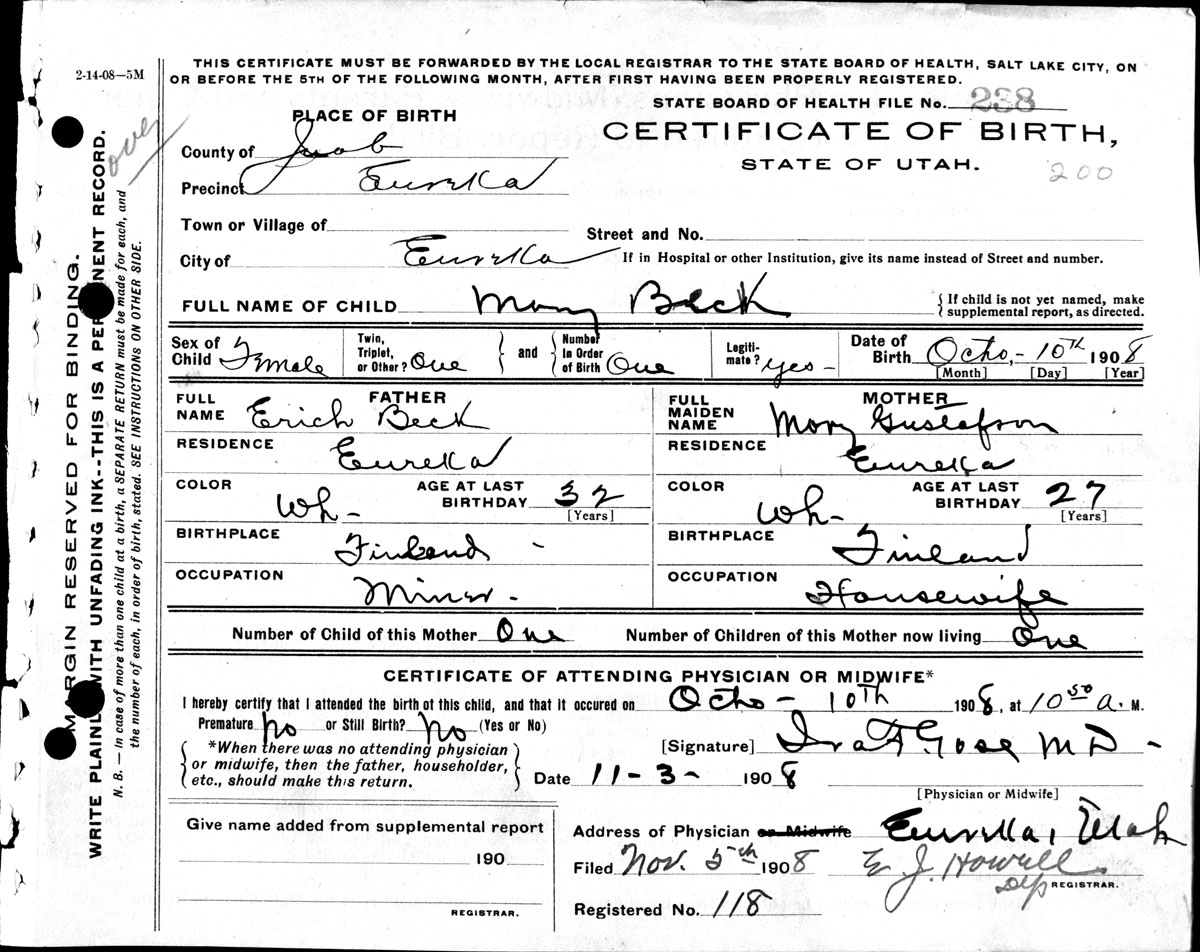 2-14-08—5M
THIS CERTIFICATE MUST BE FORWARDED BY THE LOCAL REGISTRAR TO THE STATE BOARD OF HEALTH, SALT LAKE CITY, ON
OR BEFORE THE 5TH OF THE FOLLOWING MONTH, AFTER FIRST HAVING BEEN PROPERLY REGISTERED.
STATE BOARD OF HEALTH FILE No. 238
CERTIFICATE OF BIRTH,
STATE OF UTAH.
200
over
MARGIN RESERVED FOR BINDING.
WRITE PLAINLY WITH UNFADING INK--THIS IS A PERMANENT RECORD.
N. B. — In case of more than one child at a birth, a SEPARATE RETURN must be made for each, and
the number of each, in order of birth, stated. SEE INSTRUCTIONS ON OTHER SIDE.
PLACE OF BIRTH
County of Juab
Precinct Eureka
Town or Village of
Street and No.
City of Eureka
If in Hospital or other Institution, give its name instead of Street and number.
FULL NAME OF CHILD Mary Beck
{ If child is not yet named, make
supplemental report, as directed.
Sex of Child Female
Twin, Triplet, or Other? One
and
Number In Order of Birth One
Legiti-mate? yes -
Date of Birth Octo, - 10th 1908
[Month] [Day] [Year]
FATHER
FULL NAME Erich Beck
RESIDENCE Eureka
COLOR Wh -
AGE AT LAST BIRTHDAY 32
[Years]
BIRTHPLACE Finland -
OCCUPATION Miner -
MOTHER
FULL MAIDEN NAME Mary Gustafson
RESIDENCE Eureka
COLOR Wh -
AGE AT LAST BIRTHDAY 27
[Years]
BIRTHPLACE Finland
OCCUPATION Housewife
Number of Child of this Mother One Number of Children of this Mother now living One
CERTIFICATE OF ATTENDING PHYSICIAN OR MIDWIFE*
I hereby certify that I attended the birth of this child, and that it occured on Octo - 10th 1908, at 10 50 a. M.
Premature no or Still Birth? No (Yes or No)
{ *When there was no attending physician
or midwife, then the father, householder,
etc., should make this return. }
[Signature] Ira F Gose M D -
Date 11 - 3 - 1908
[Physician or Midwife]
Give name added from supplemental report
190
REGISTRAR.
Address of Physician or Midwife Eureka, Utah
Filed Nov. 5th 1908 E J. Howell
Dep REGISTRAR.
Registered No. 118